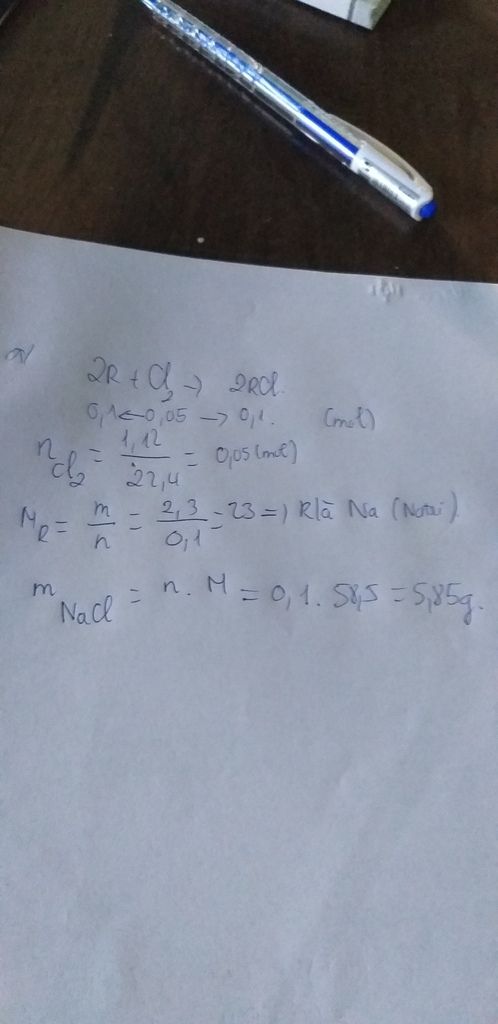 2R + Cl₂ → 2RCl.
0,1 ← 0,05 → 0,1. (mol)
n Cl₂ = 1,12 / 22,4 = 0,05 (mol)
M R = m / n = 2,3 / 0,1 = 23 => R là Na (Natri).
m NaCl = n . M = 0,1 . 58,5 = 5,85g.